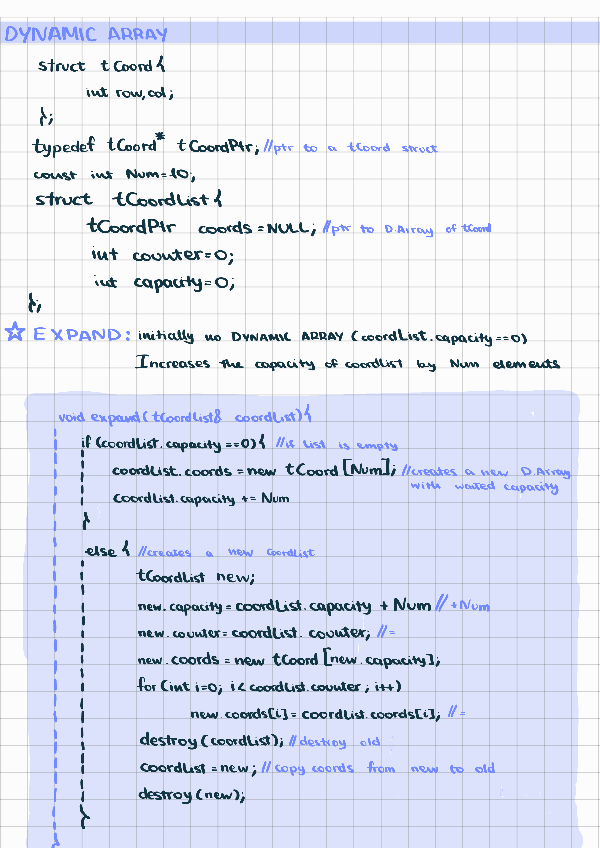 DYNAMIC ARRAY
struct tCoord{
int row,col;
};
typedef tCoord* tCoordPtr; //ptr to a tCoord struct
const int Num=10;
struct tCoordList{
tCoordPtr coords=NULL; //ptr to D.Array of tCoord
int counter=0;
int capacity=0;
};
☆ EXPAND: initially no DYNAMIC ARRAY (coordList.capacity==0)
Increases the capacity of coordlist by Num elements
void expand(tCoordList& coordList){
if (coordList.capacity==0){ //if list is empty
coordList.coords=new tCoord[Num]; //creates a new D.Array
with wated capacity
coordList.capacity += Num
}
else{ //creates a new CoordList
tCoordList new;
new.capacity=coordList.capacity + Num //+Num
new.counter=coordList.counter; //=
new.coords=new tCoord[new.capacity];
for(int i=0; i<coordList.counter; i++)
new.coords[i]=coordList.coords[i]; //=
destroy(coordList); //destroy old
coordList=new; //copy coords from new to old
destroy(new);
}
}